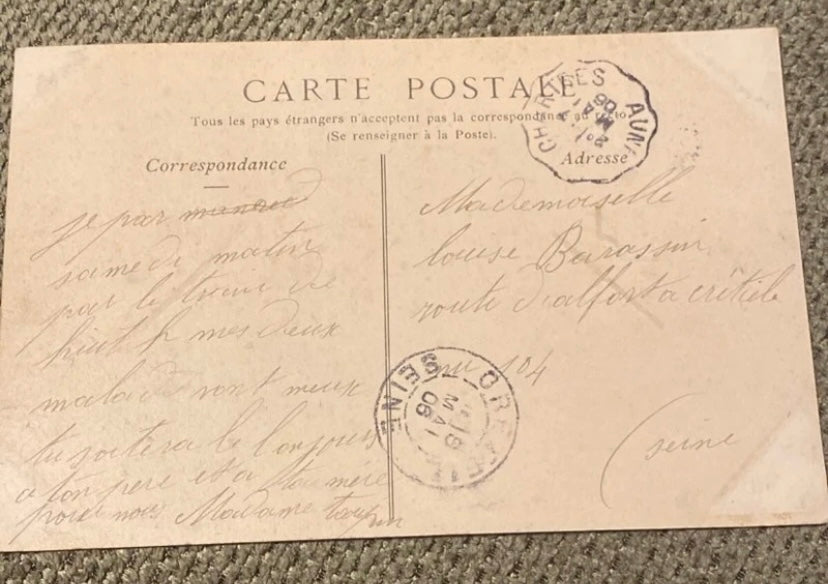 CARTE POSTALE
Tous les pays étrangers n'acceptent pas la correspondance au recto.
(Se renseigner à la Poste).
CHARTRES
AUN
MAI
06
Correspondance
Adresse
je par
samedi matin
par le train de
huit h mes deux
malade vont meux
tu soitera le bonjour
a ton pere et a ta mère
pour nous Madame
Mademoiselle
Louise Barassin
route d'alfort a crêtiele
nu 104
(seine
SEINE
18
MAI
06